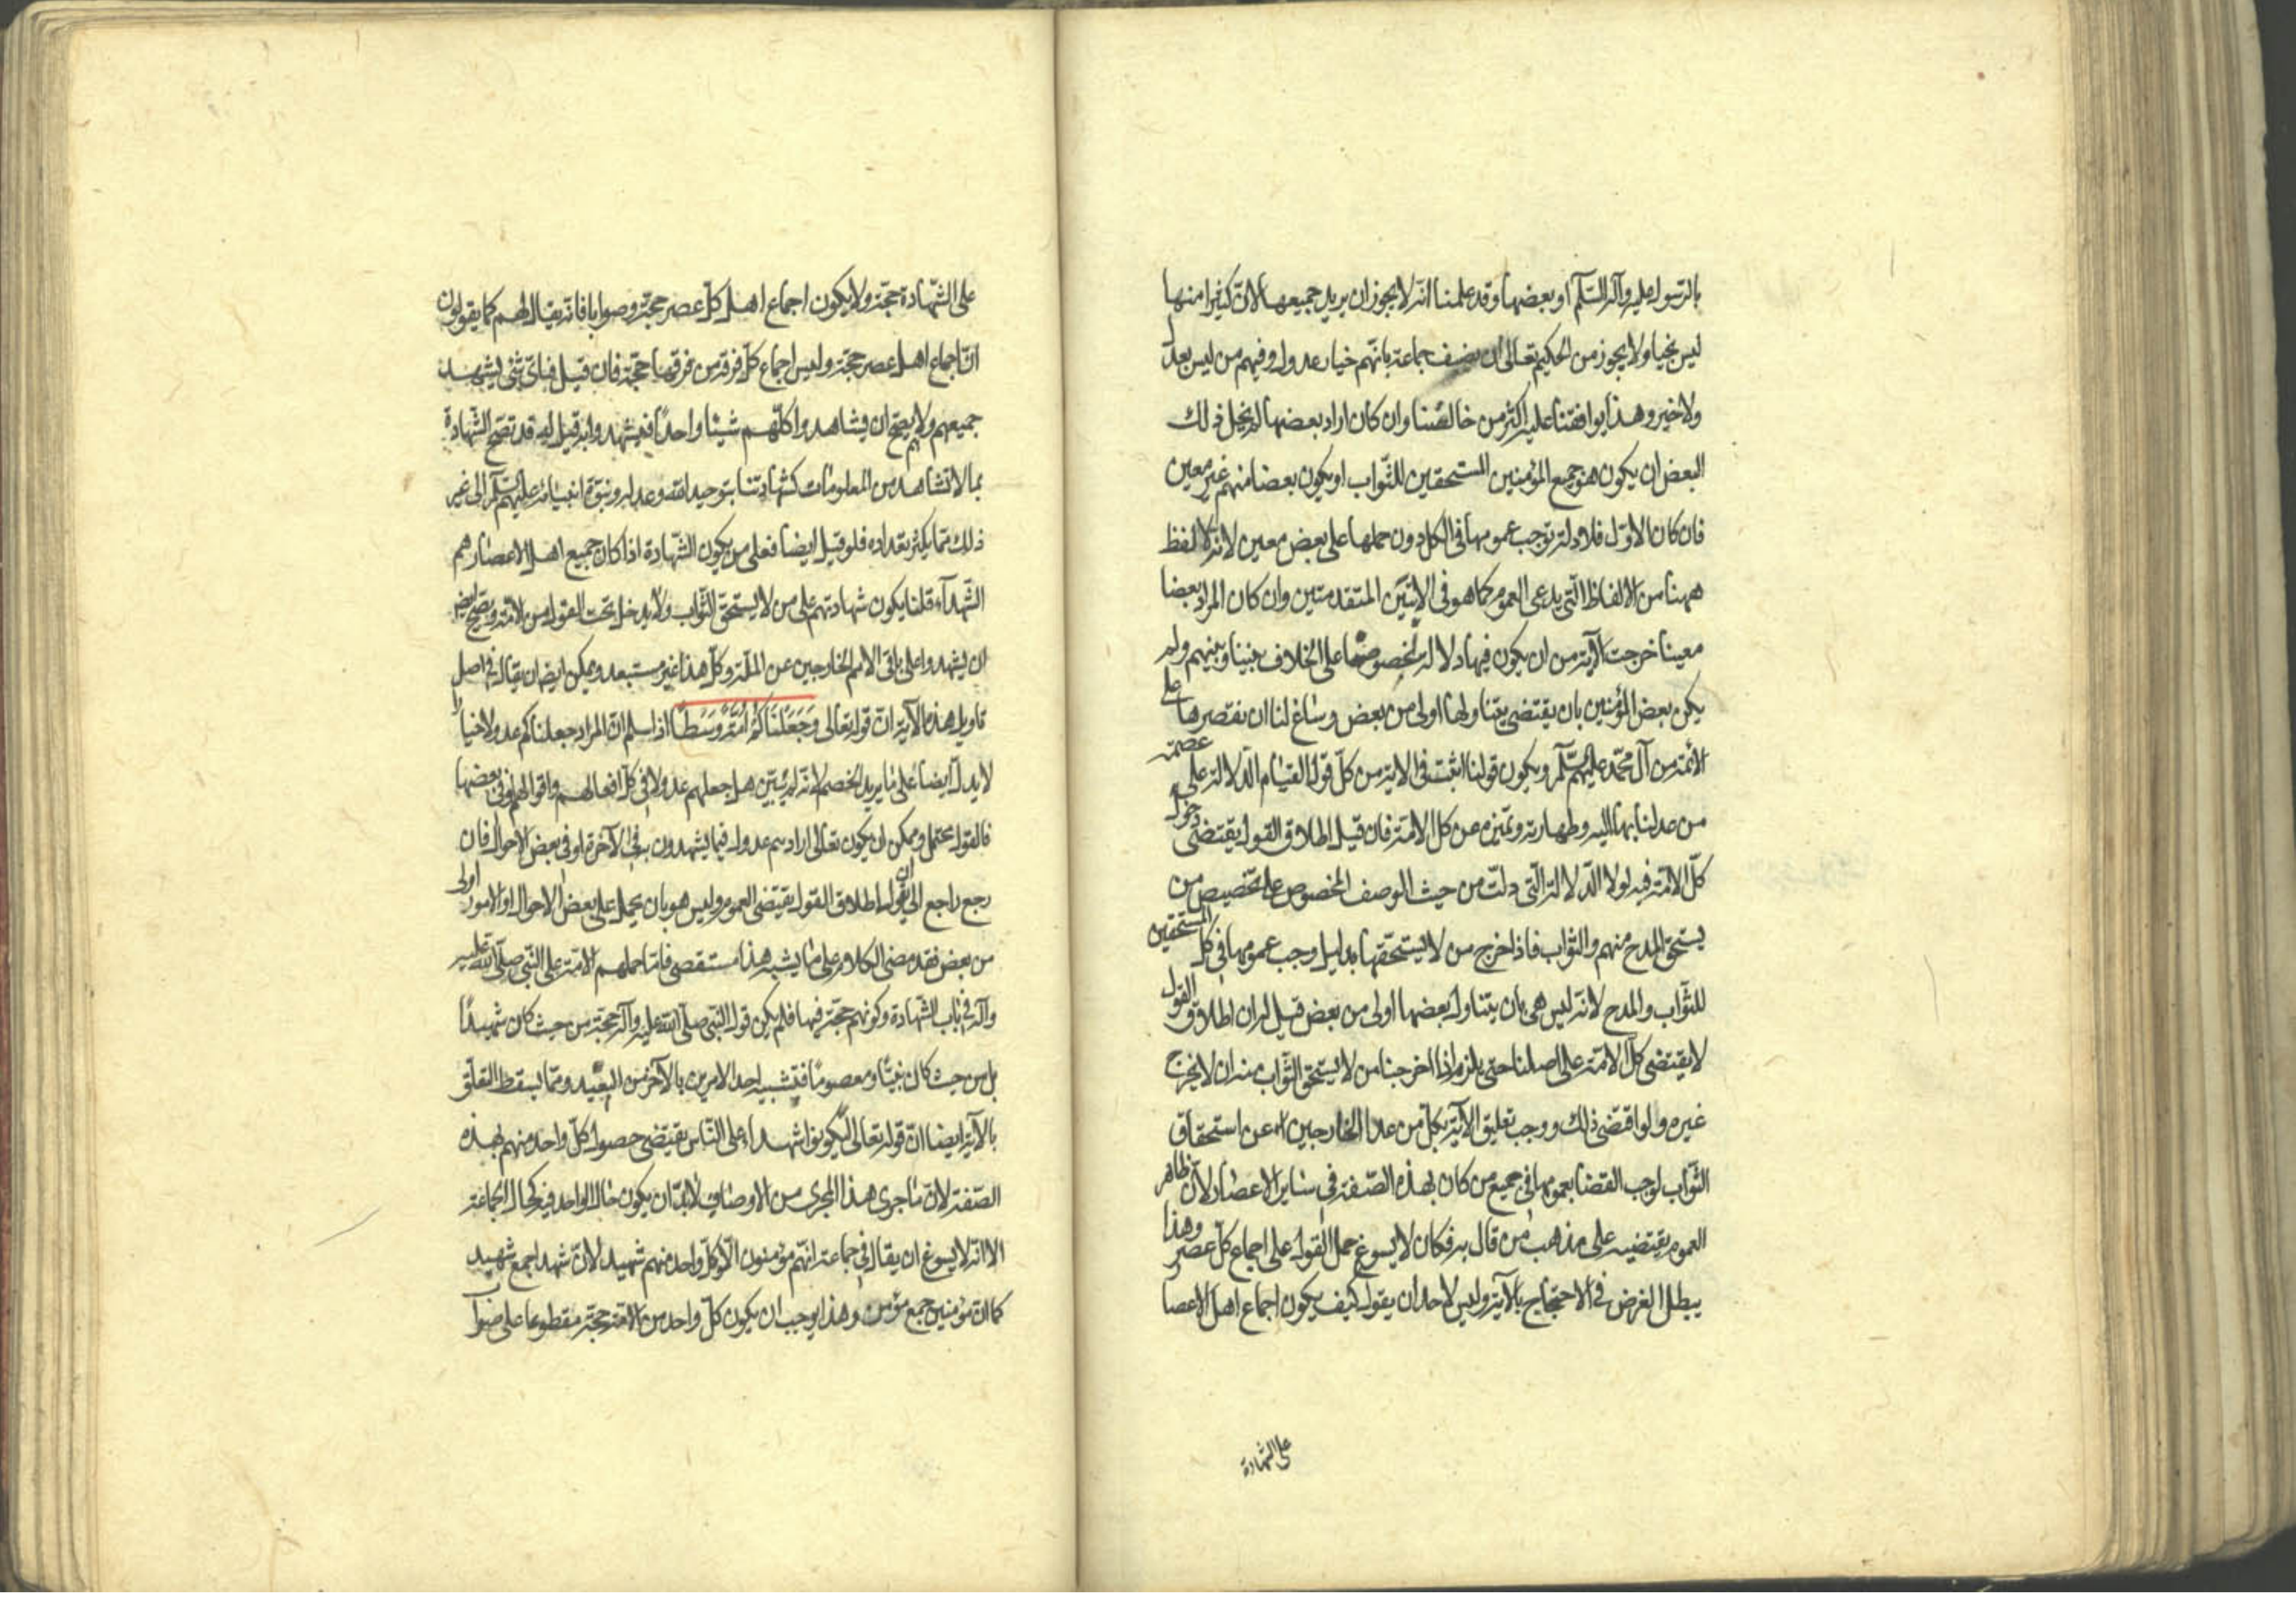 بالرسول عليه وآله السلم او بعضها وقد علمنا انه لا يجوز ان يريد جميعها لان كثيرا منها
ليس بخيار ولا يجوز من الحكيم تعالى ان يصف جماعة بانهم خيار عدول وفيهم من ليس بعدل
ولا خير وهذا يوافقنا عليه اكثر من خالفنا وان كان اراد بعضها لم يخل ذلك
البعض ان يكون هو جميع المؤمنين المستحقين للثواب او يكون بعضا منهم غير معين
فان كان الاول فلا دلالة توجب عمومها في الكل دون حملها على بعض معين لانه لا لفظ
ههنا من الالفاظ التي يدعى العموم كما هو في الايتين المتقدمتين وان كان المراد بعضا
معينا خرجت الآية من ان يكون فيها دلالة لخصومنا على الخلاف بيننا وبينهم ولم
يكن بعض المؤمنين بان يقتضى يتناولها اولى من بعض وساغ لنا ان نقتصرها على
الائمة من آل محمد عليهم السلم ويكون قولنا اثبت في الاية من كل قول لقيام الدلالة على عصمة
من عدلنا بها اليه وطهارته وتميزه من كل الامة فان قيل اطلاق القول يقتضى دخول
كل الامة فيه لولا الدلالة التى دلت من حيث الوصف المخصوص على تخصيص من
يستحق المدح منهم والثواب فاذا خرج من لا يستحقها بدليل وجب عمومها في كل المستحقين
للثواب والمدح لانه ليس هى بان يتناول بعضها اولى من بعض قيل له ان اطلاق القول
لا يقتضى كل الامة على اصلنا حتى يلزم اذا اخرجنا من لا يستحق الثواب منه ان لا يخرج
غيره ولو اقتضى ذلك ووجب تعليق الآية بكل من عدا الخارجين عن استحقاق
الثواب لوجب القضا بعمومها في جميع من كان بهذه الصفة في ساير الاعصار لان ظاهر
العموم يقتضيه على مذهب من قال به فكان لا يسوغ حمل القول على اجماع كل عصر وهذا
يبطل الغرض في الاحتجاج بالآية وليس لاحد ان يقول كيف يكون اجماع اهل الاعصا
على الشهادة
على الشهادة حجة ولا يكون اجماع اهل كل عصر حجة وصوابا فانه يقال لهم كما يقولون
ان اجماع اهل عصر حجة وليس اجماع كل فرقة من فرقها حجة فان قيل فباى شئ يشهد
جميعهم ولا يصح ان يشاهدوا كلهم شيئا واحدا فيشهدوا به قيل له قد تصح الشهادة
بما لا تشاهد من المعلومات كشهادتنا بتوحيد الله وعدله ونبوة انبيائه عليهم السلم الى غير
ذلك مما يكثر تعداده فلو قيل ايضا فعلى من يكون الشهادة اذا كان جميع اهل الاعصار هم
الشهدآء قلنا يكون شهادتهم على من لا يستحق الثواب ولا يدخل تحت القول من الامة ويصح ايضا
ان يشهدوا على باقى الامم الخارجين عن الملة وكل هذا غير مستبعد ويمكن ايضا ان يقال في اصل
تاويل هذه الآية ان قوله تعالى وَجَعَلْنَاكُمْ اُمَّةً وَسَطًا اذا سلم ان المراد جعلناكم عدولا خيارا
لا يدل ايضا على ما يريد الخصم لانه لم يبين هل جعلهم عدولا في كل افعالهم واقوالهم او في بعضها
فالقول محتمل ويمكن ان يكون تعالى اراد بهم عدول فيما يشهدون به في الآخرة او في بعض الاحوال فان
رجع راجع الى ان يقول اطلاق القول يقتضى العموم وليس هو بان يحمل على بعض الاحوال او الامور اولى
من بعض فقد مضى الكلام على ما يشبه هذا مستقصى فاما حملهم الامة على النبى صلى الله عليه
وآله في باب الشهادة وكونهم حجة فيها فلم يكن قول النبى صلى الله عليه وآله حجة من حيث كان شهيدا
بل من حيث كان نبيا ومعصوما فتشبيه احد الامرين بالآخر من البعيد ومما يسقط التعلق
بالآية ايضا ان قوله تعالى لتكونوا شهداء على الناس يقتضى حصول كل واحد منهم بهذه
الصفة لان ما جرى هذا المجرى من الاوصاف لابد ان يكون حال الواحد فيه كحال الجماعة
الا انه لا يسوغ ان يقال في جماعة انهم مؤمنون الا وكل واحد منهم شهيد لان شهداء جمع شهيد
كما ان مؤمنين جمع مؤمن وهذا يوجب ان يكون كل واحد من الامة حجة مقطوعا على صواب